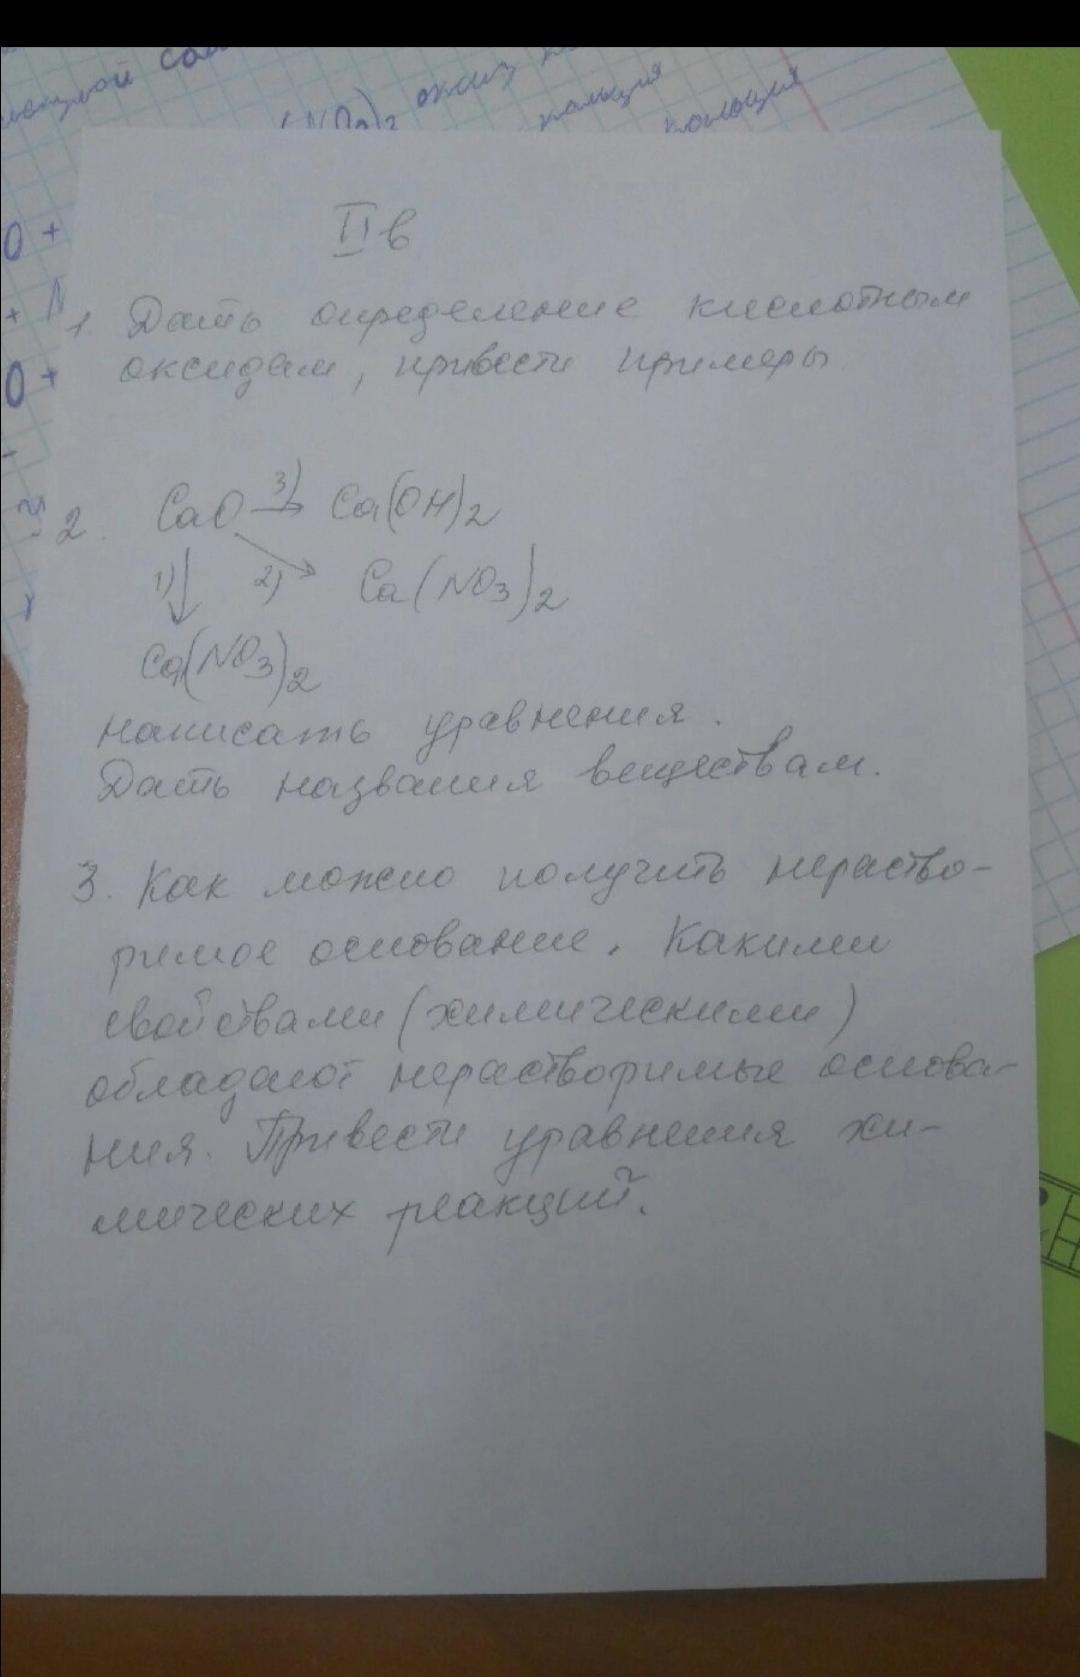 сой
(NO3)2 оксид
кальция
кальция
O +
+ N
O +
II в
1. Дать определение кислотным
оксидам, привести примеры.
2. CaO 3)→ Ca(OH)2
1)↓ 2)→ Ca(NO3)2
Ca(NO3)2
написать уравнения.
Дать названия веществам.
3. Как можно получить нераство-
римое основание. Какими
свойствами (химическими)
обладают нерастворимые основа-
ния. Привести уравнения хи-
мических реакций.